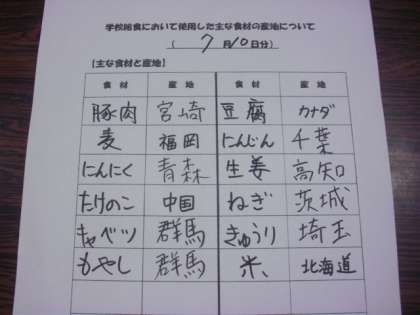 学校給食において使用した主な食材の産地について
( 7月10日分)
【主な食材と産地】
食材 産地 食材 産地
豚肉 宮崎 豆腐 カナダ
麦 福岡 にんじん 千葉
にんにく 青森 生姜 高知
たけのこ 中国 ねぎ 茨城
キャベツ 群馬 きゅうり 埼玉
もやし 群馬 米、 北海道